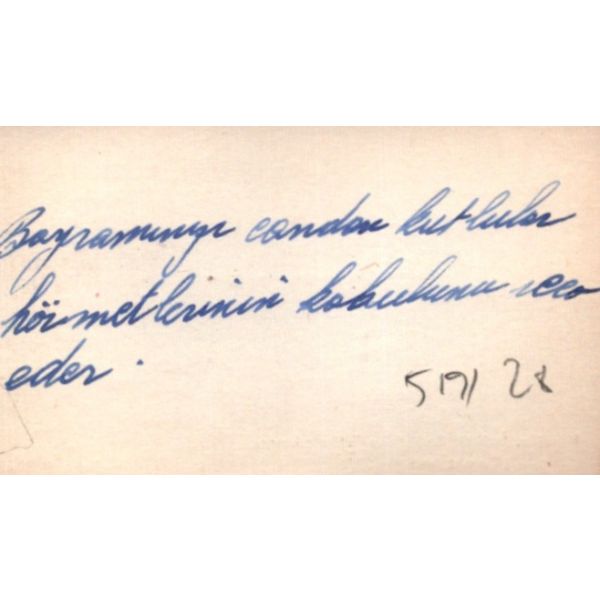 Bayramınızı candan kutlular
hörmetlerinin kabulunu rica
eder.
519/28